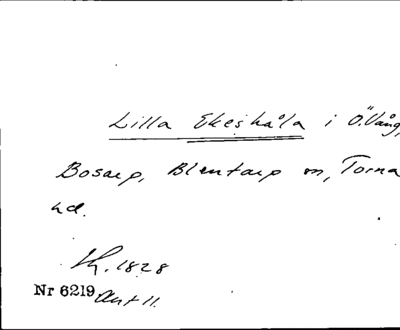 Lilla Ekeshåla i Ö.Vång,
Bosarp, Blentarp sn, Torna
hd.
Sk. 1828
Nr 6219 Akt 11.